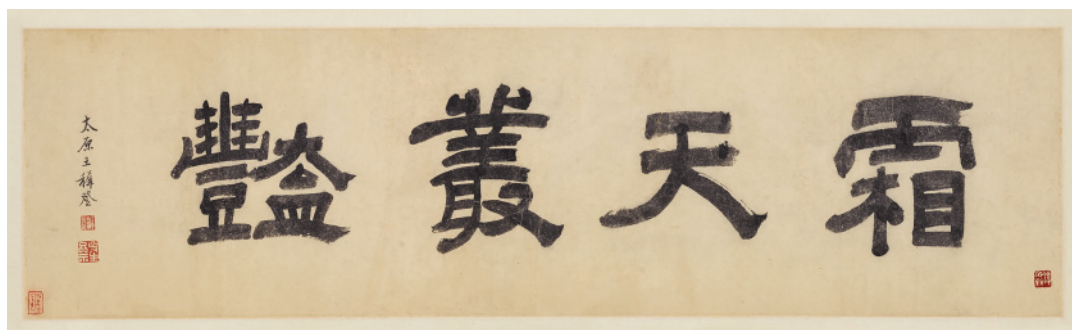 霜天叢豔
太原王穉登